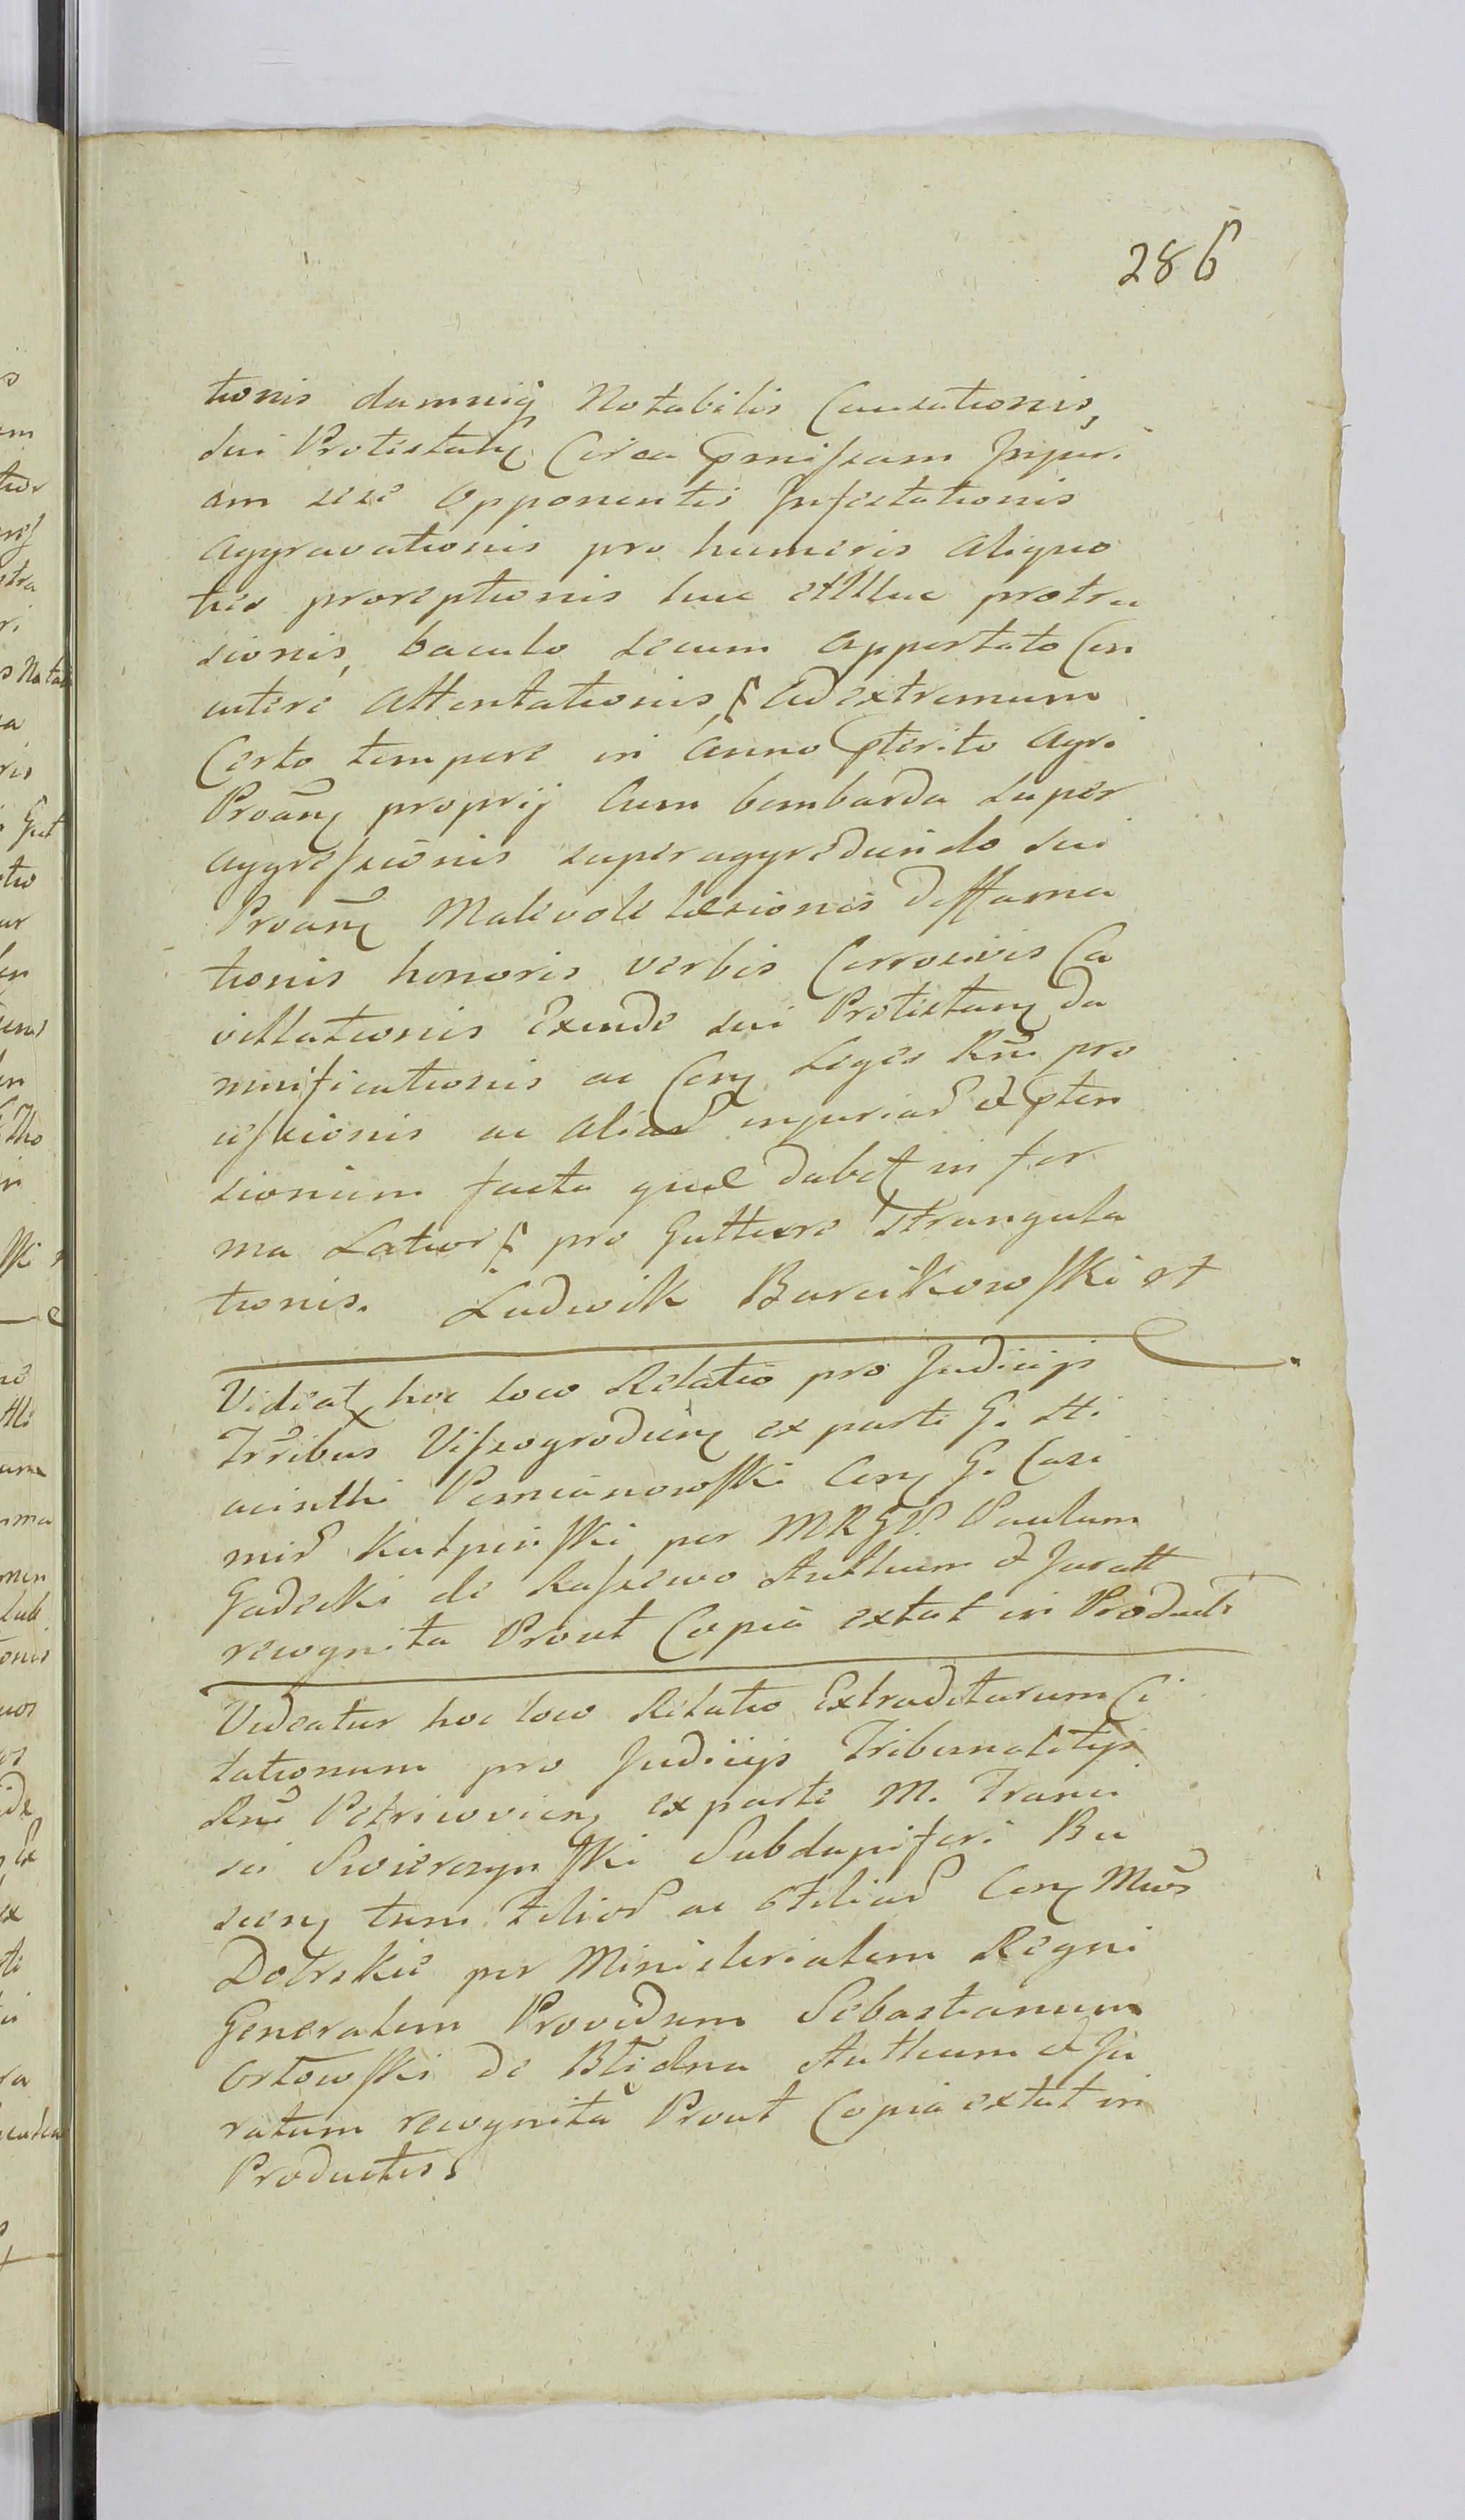 286
tionis damniq notabilis Causationis,
sui Protestanq Circa pmissam Injuri
am sese opponentis Infestationis
aggravationis pro humeris aliquo
ties proreptionis huc et Illuc protru
sionis, baculo secum apportato Con
cutere attentationis, & ad extremum
Certo tempore in anno pterito agri
Proanq proprij Cum bombarda super
aggressionis superaggrediendo sui
Proanq Malevole læsionis diffama
tionis honoris verbis Corrosivis Ca
villationis Exinde sui Protestanq da
mnificationis ac Conq Leges Rni pro
cessionis ac alias injurias et pten
sionum facta quæ dabit in for
ma Latiori & pro Gutture Strangula
tionis. Ludwik Barcikowski et
Videat hoc loco Relatio pro Judicijs
Trribus Vissogrodienq ex parte G. Hi
acinthi Pomianowski Conq G. Casi
mir Kulpinski per MRGP. Paulum
Gadecki de Rassewo Authum et Juratt
recognita Prout Copia extat in Product
Videatur hoc loco Relatio Extraditarum Ci
tationum pro Judicijs Tribunalitijs
Rni Petricovienq ex parte M. Franci
sci Swierczynski Subdapiferi Bu
scenq tum Filios ac Filias Conq Mcos
Dobrskie per Ministerialem Regni
Generalem Providum Sebastianum
Orłowski de Błędna Authum et Ju
ratum recognita Prout Copia extat in
Productis.